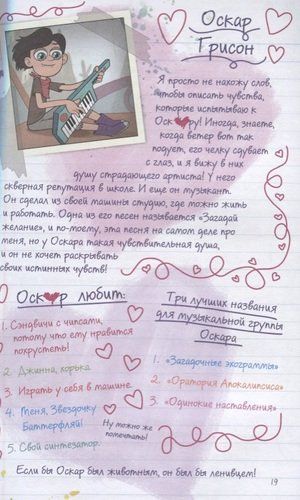 Оскар
Грисон
Я просто не нахожу слов,
чтобы описать чувства,
которые испытываю к
Оск❤ру! Иногда, знаете,
когда ветер вот так
подует, его челку сдувает
с глаз, и я вижу в них
душу страдающего артиста! У него
скверная репутация в школе. И еще он музыкант.
Он сделал из своей машины студию, где можно жить
и работать. Одна из его песен называется «Загадай
желание», и по-моему, эта песня на самом деле про
меня, но у Оскара такая чувствительная душа,
и он не хочет раскрывать
своих истинных чувств!
Оск❤р любит:
1. Сэндвичи с чипсами,
потому что ему нравится
похрустеть!
2. Джинна, хорька
3. Играть у себя в машине
4. Меня, Звездочку
Баттерфляй!
Ну можно же
помечтать!
5. Свой синтезатор.
Три лучших названия
для музыкальной группы
Оскара
1. «Загадочные эхограммы»
2. «Оратория Апокалипсиса»
3. «Одинокие наставления»
Если бы Оскар был животным, он был бы ленивцем!
19